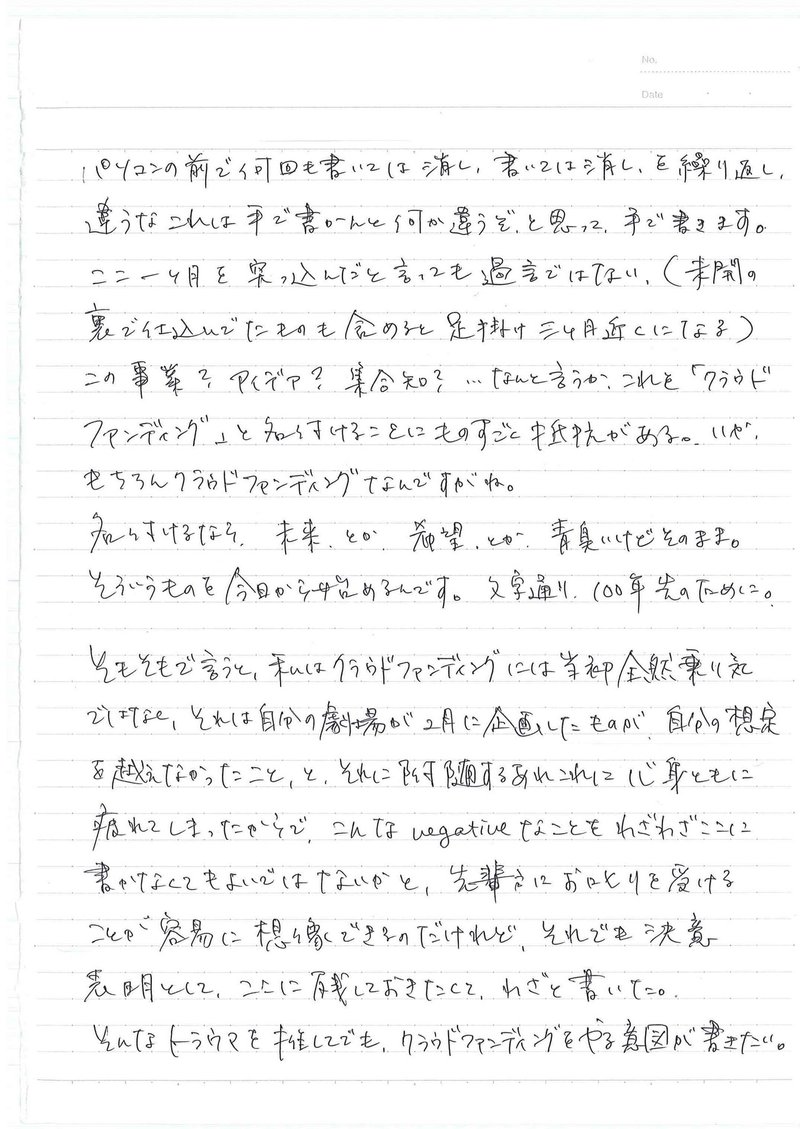 No.
Date
パソコンの前で何回も書いては消し、書いては消し、を繰り返し、
違うなこれは手で書かんと何か違うぞ、と思って、手で書きます。
ここ一ヶ月を突っ込んだと言っても過言ではない、(未開の
裏で仕込んでたものも含めると足掛け三ヶ月近くになる)
この事業?アイデア?集合知?…なんと言うか、これを「クラウド
ファンディング」と名付けることにものすごく抵抗がある。いや、
もちろんクラウドファンディングなんですがね。
名付けるなら、未来、とか、希望、とか、青臭いけどそのまま。
そういうものを今日から始めるんです。文字通り、100年先のために。
そもそもで言うと、私はクラウドファンディングには当初全然乗り気
ではなく、それは自分の劇場が2月に企画したものが、自分の想定
を越えなかったこと、と、それに附随するあれこれに心身ともに
疲れてしまったからで、こんなnegativeなことをわざわざここに
書かなくてもよいではないかと、先輩方におしかりを受ける
ことが容易に想像できるのだけれど、それでも決意
表明として、ここに残しておきたくて、わざと書いた。
そんなトラウマを推してでも、クラウドファンディングをやる意図が書きたい。